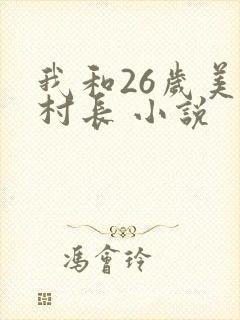 我和26歲美
村長 小說
馮會玲